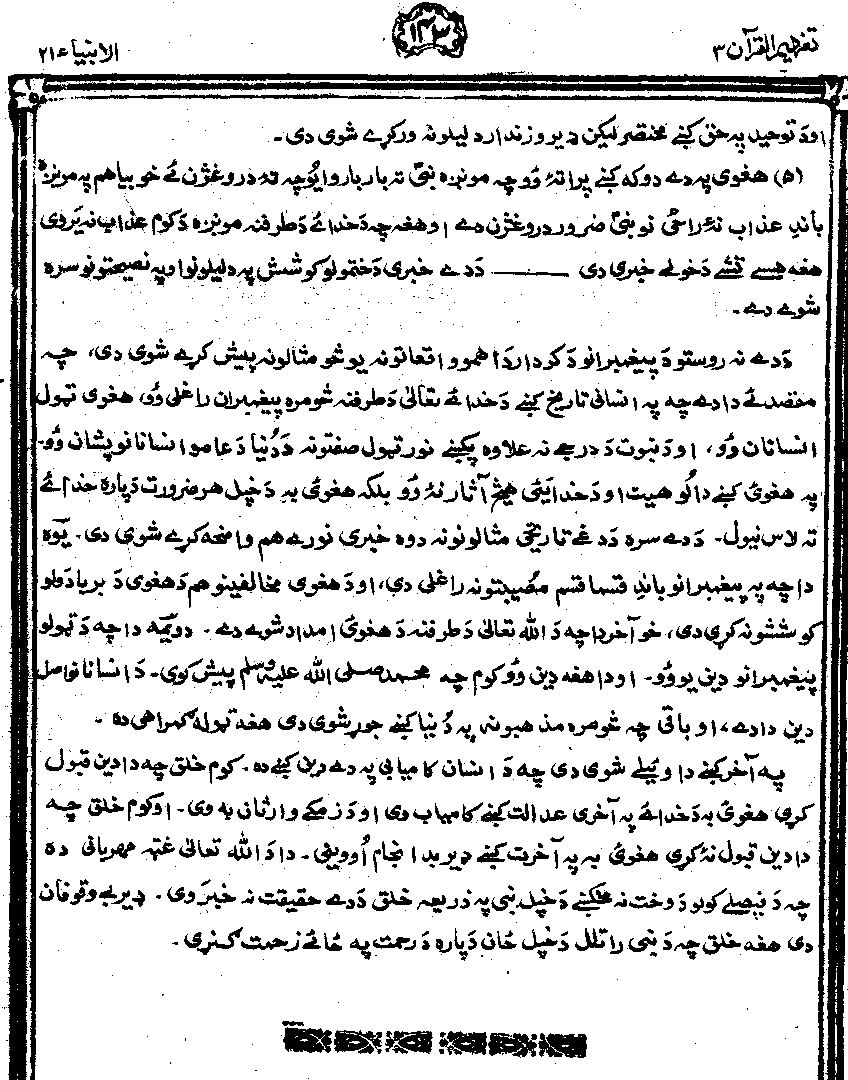 تفهیم القرآن ۳
۱۴۳
الانبیاء ۲۱
اودَ توحید پہ حق کښے مختصر لیکن ډیر وزندار دلیلونہ ورکړے شوی دی۔
(۵) هغوی پہ دے دوکہ کښے پراتۂ وُو چہ مونږہ نبیؐ تہ بار بار وایُو چہ تۂ دروغژن ئے خو بیا هم پہ مونږہ
باندِ عذاب نۂ راځی نو نبیؐ ضرور دروغژن دے اوهغہ چہ دَ خدائے دَ طرفنہ مونږہ دَ کوم عذاب نہ یَروی
هغہ هسے تشے دَ خولے خبری دی ـــــــــ دَدے خبری دَ ختمولو کوشش پہ دلیلونو او پہ نصیحتونو سره
شوے دے۔
دَدے نہ روستو دَ پیغمبرانو دَ کردار دَ اهمو واقعاتو نہ یو څو مثالونہ پیش کړے شوی دی، چہ
مقصد ئے دادے چہ پہ انسانی تاریخ کښے دَ خدائے تعالیٰ دَ طرفنہ څومره پیغمبران راغلی وُو، هغوی ټول
انسانان وُو، اودَ نبوت دَ درجے نہ علاوه پکښے نور ټول صفتونہ دَ دُنیا دَ عامو انسانانو پشان وُو۔
پہ هغویٔ کښے دالُوهیت اودَ خدایئی هیڅ آثار نۂ وُو بلکہ هغویٔ بہ دَ خپل هر ضرورت دَپاره خدائے
تہ لاس نیول۔ دَدے سره دَدغے تاریخی مثالونونہ دوه خبری نورے هم واضحہ کړے شوی دی۔ یَوه
داچہ پہ پیغمبرانو باندِ قسما قسم مُصیبتونہ راغلی دی، اودَ هغوی مخالفینو هم دَ هغوی دَ بربادَولو
کوششونہ کړی دی، خو آخر داچہ دَ اللہ تعالیٰ دَ طرفنہ دَ هغویٔ امداد شوے دے۔ دویٔمہ داچہ دَ ټولو
پیغمبرانو دین یو وُو۔ اودا هغہ دین وُو کوم چہ محمد صلی اللہ علیہ وسلم پیش کوی۔ دَ انسانانو اصل
دین دادے، او باقی چہ څومره مذهبونہ پہ دُنیا کښے جوړ شوی دی هغہ ټولہ گمراهی ده۔
پہ آخر کښے دا ویٔلے شوی دی چہ دَ انسان کامیابی پہ دے دین کښے ده۔ کوم خلق چہ دا دین قبول
کړی هغویٔ بہ دَ خدائے پہ آخری عدالت کښے کامیاب وی اودَ زمکے وارثان بہ وی۔ اوکوم خلق چہ
دا دین قبول نۂ کړی هغویٔ بہ پہ آخرت کښے ډیر بد انجام اُووینی۔ دا دَ اللہ تعالیٰ غټہ مهربانی ده
چہ دَ فیصلے کولو دَ وخت نہ مخکښے دَ خپل نبی پہ ذریعہ خلق دَدے حقیقت نہ خبرَوی۔ ډیر بے وقوفان
دی هغہ خلق چہ دَ نبی راتلل دَ خپل ځان دَپاره دَ رحمت پہ ځائے زحمت گنړی۔